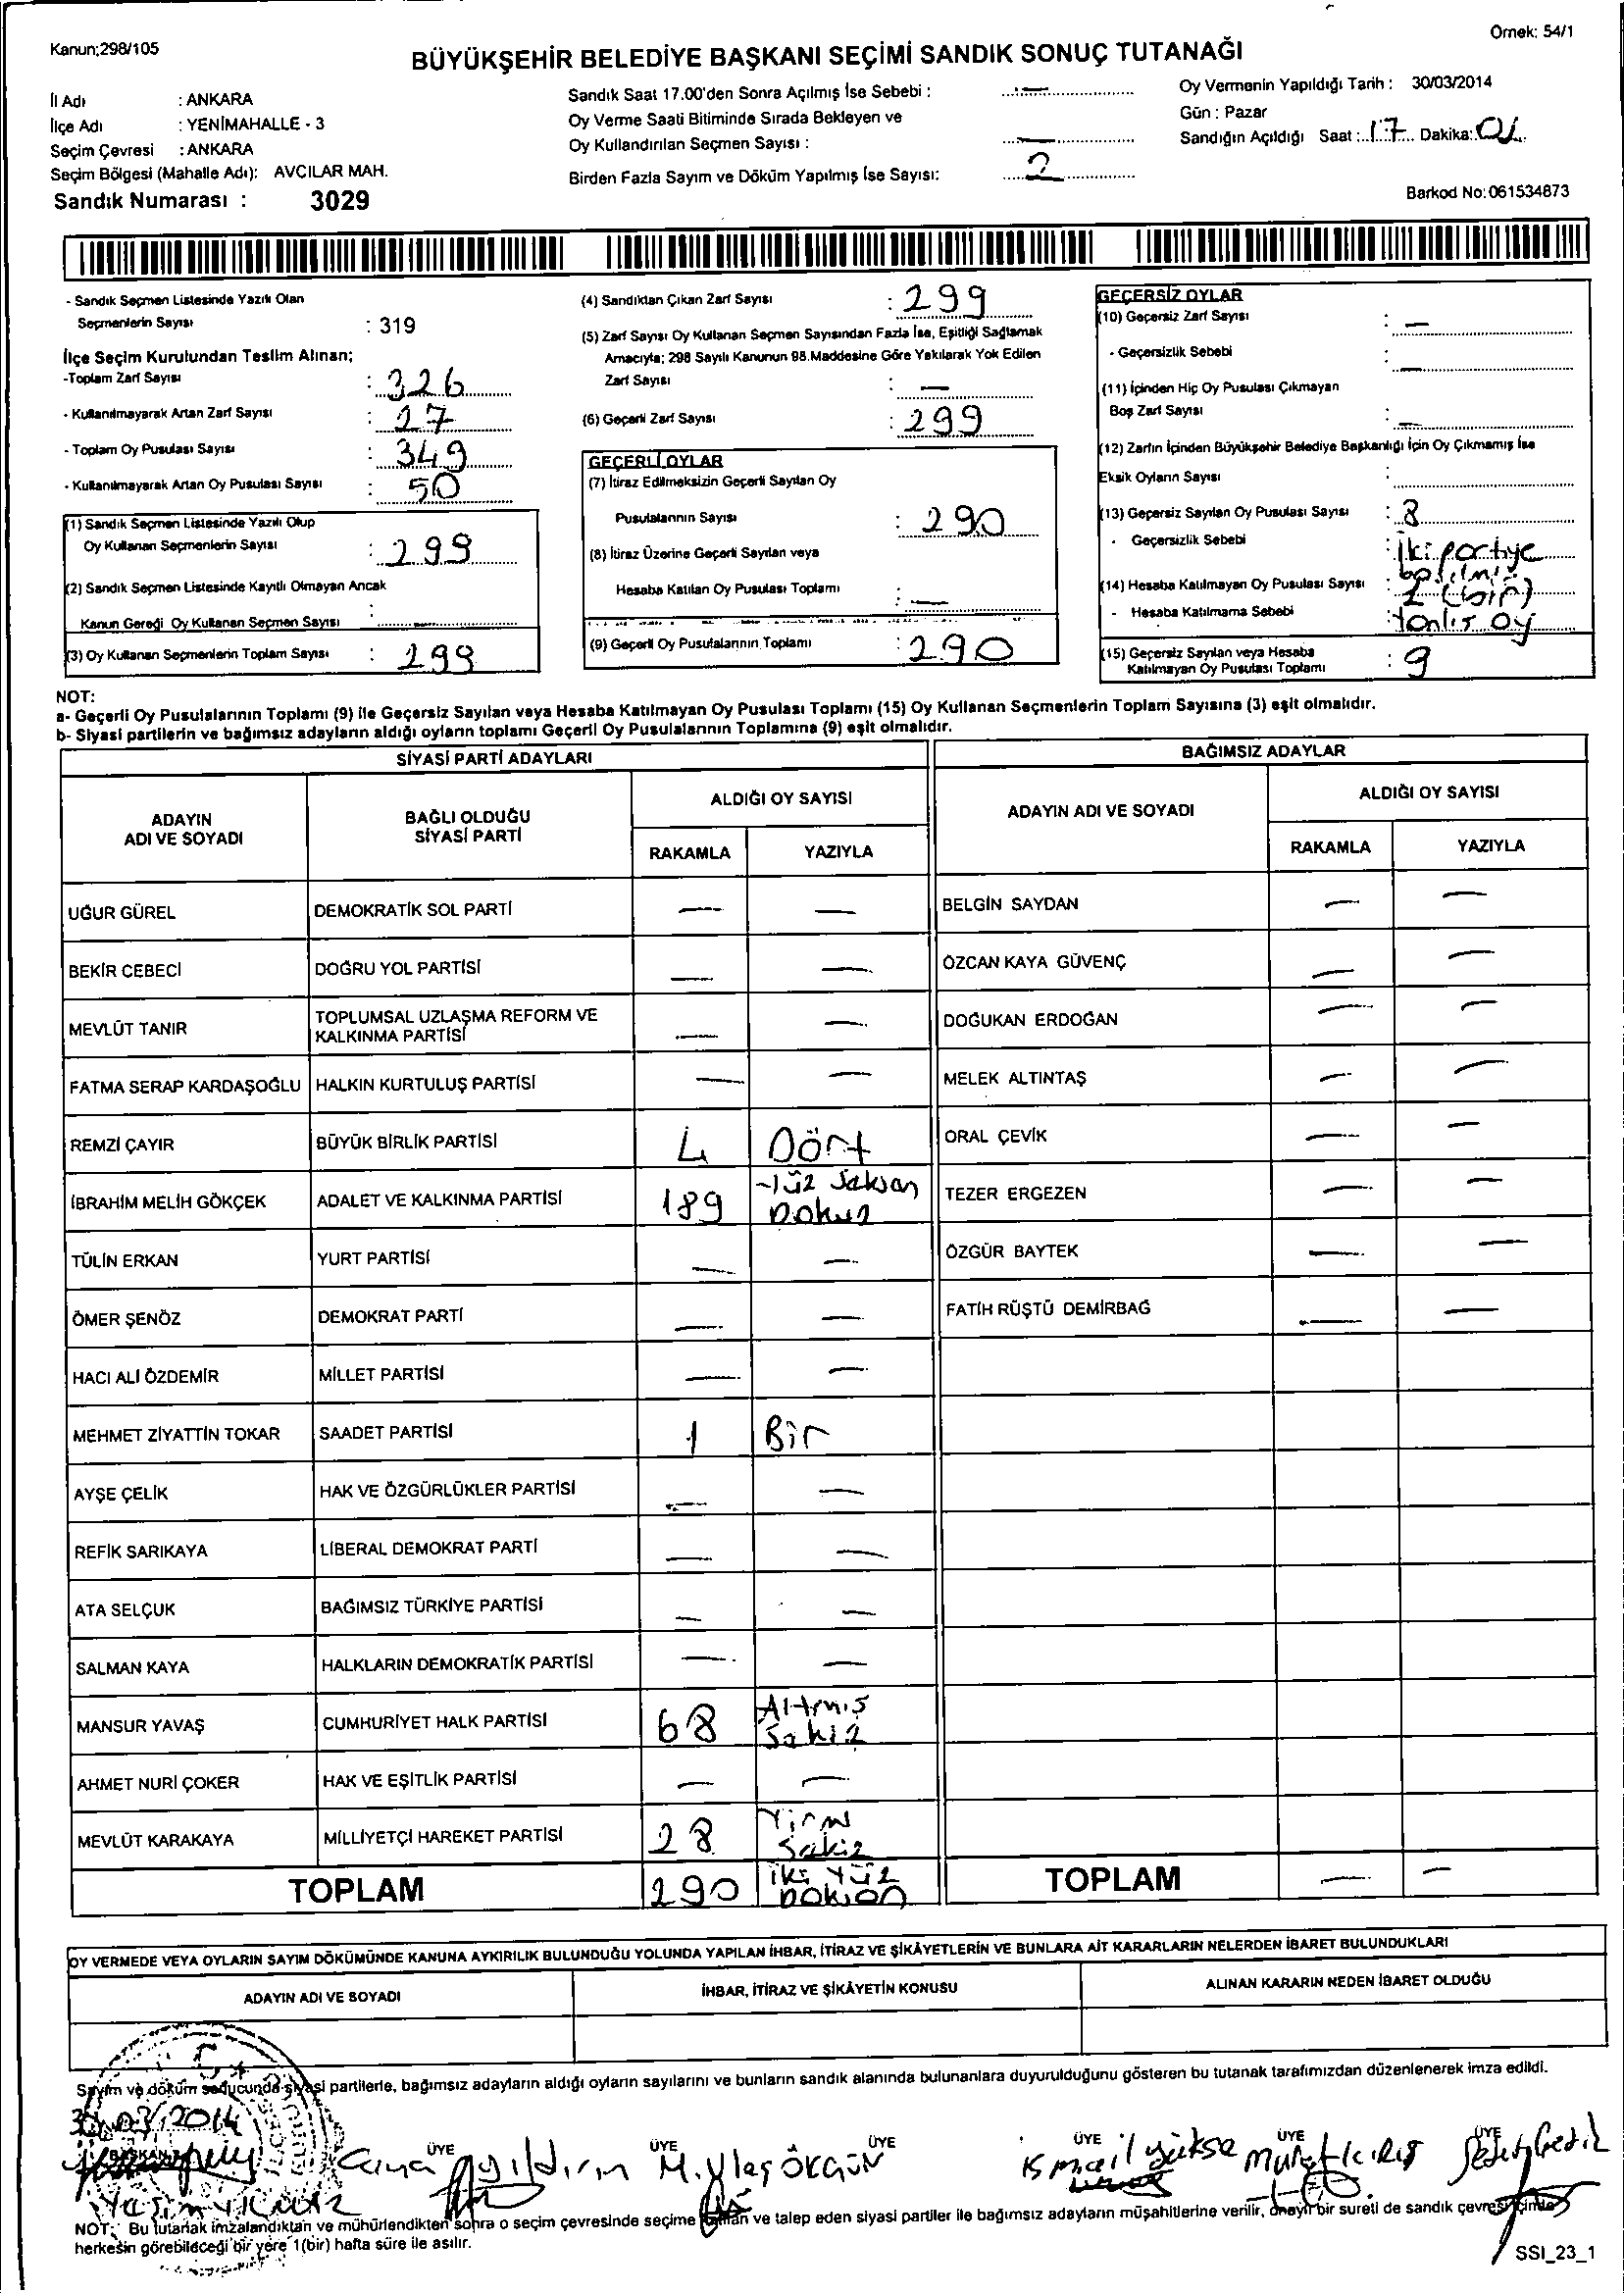 Örnek: 54/1
Kanun;298/105
BÜYÜKŞEHİR BELEDİYE BAŞKANI SEÇİMİ SANDIK SONUÇ TUTANAĞI
İl Adı : ANKARA
İlçe Adı : YENİMAHALLE - 3
Seçim Çevresi : ANKARA
Seçim Bölgesi (Mahalle Adı): AVCILAR MAH.
Sandık Numarası : 3029
Sandık Saat 17.00'den Sonra Açılmış İse Sebebi : —
Oy Verme Saati Bitiminde Sırada Bekleyen ve
Oy Kullandırılan Seçmen Sayısı : —
Birden Fazla Sayım ve Döküm Yapılmış İse Sayısı: 2
Oy Vermenin Yapıldığı Tarih : 30/03/2014
Gün : Pazar
Sandığın Açıldığı Saat : 17 Dakika:
Barkod No: 061534873
- Sandık Seçmen Listesinde Yazılı Olan
Seçmenlerin Sayısı : 319
İlçe Seçim Kurulundan Teslim Alınan;
-Toplam Zarf Sayısı : 326
- Kullanılmayarak Artan Zarf Sayısı : 27
- Toplam Oy Pusulası Sayısı : 349
- Kullanılmayarak Artan Oy Pusulası Sayısı : 50
(1) Sandık Seçmen Listesinde Yazılı Olup
Oy Kullanan Seçmenlerin Sayısı : 299
(2) Sandık Seçmen Listesinde Kayıtlı Olmayan Ancak
Kanun Gereği Oy Kullanan Seçmen Sayısı :
(3) Oy Kullanan Seçmenlerin Toplam Sayısı : 299
(4) Sandıktan Çıkan Zarf Sayısı : 299
(5) Zarf Sayısı Oy Kullanan Seçmen Sayısından Fazla İse, Eşitliği Sağlamak
Amacıyla; 298 Sayılı Kanunun 98.Maddesine Göre Yakılarak Yok Edilen
Zarf Sayısı : —
(6) Geçerli Zarf Sayısı : 299
GEÇERLİ OYLAR
(7) İtiraz Edilmeksizin Geçerli Sayılan Oy
Pusulalarının Sayısı : 290
(8) İtiraz Üzerine Geçerli Sayılan veya
Hesaba Katılan Oy Pusulası Toplamı : —
(9) Geçerli Oy Pusulalarının Toplamı : 290
GEÇERSİZ OYLAR
(10) Geçersiz Zarf Sayısı : —
- Geçersizlik Sebebi : —
(11) İçinden Hiç Oy Pusulası Çıkmayan
Boş Zarf Sayısı : —
(12) Zarfın İçinden Büyükşehir Belediye Başkanlığı İçin Oy Çıkmamış İse
Eksik Oyların Sayısı :
(13) Geçersiz Sayılan Oy Pusulası Sayısı : 8
- Geçersizlik Sebebi : İki partiye
(14) Hesaba Katılmayan Oy Pusulası Sayısı : (bir)
- Hesaba Katılmama Sebebi : oy
(15) Geçersiz Sayılan veya Hesaba
Katılmayan Oy Pusulası Toplamı : 9
NOT:
a- Geçerli Oy Pusulalarının Toplamı (9) ile Geçersiz Sayılan veya Hesaba Katılmayan Oy Pusulası Toplamı (15) Oy Kullanan Seçmenlerin Toplam Sayısına (3) eşit olmalıdır.
b- Siyasi partilerin ve bağımsız adayların aldığı oyların toplamı Geçerli Oy Pusulalarının Toplamına (9) eşit olmalıdır.
SİYASİ PARTİ ADAYLARI
ADAYIN ADI VE SOYADI
BAĞLI OLDUĞU SİYASİ PARTİ
ALDIĞI OY SAYISI
RAKAMLA YAZIYLA
UĞUR GÜREL DEMOKRATİK SOL PARTİ — —
BEKİR CEBECİ DOĞRU YOL PARTİSİ — —
MEVLÜT TANIR TOPLUMSAL UZLAŞMA REFORM VE
KALKINMA PARTİSİ — —
FATMA SERAP KARDAŞOĞLU HALKIN KURTULUŞ PARTİSİ — —
REMZİ ÇAYIR BÜYÜK BİRLİK PARTİSİ 4 Dört
İBRAHİM MELİH GÖKÇEK ADALET VE KALKINMA PARTİSİ 189 Yüz Seksen
Dokuz
TÜLİN ERKAN YURT PARTİSİ — —
ÖMER ŞENÖZ DEMOKRAT PARTİ — —
HACI ALİ ÖZDEMİR MİLLET PARTİSİ — —
MEHMET ZİYATTİN TOKAR SAADET PARTİSİ 1 Bir
AYŞE ÇELİK HAK VE ÖZGÜRLÜKLER PARTİSİ — —
REFİK SARIKAYA LİBERAL DEMOKRAT PARTİ — —
ATA SELÇUK BAĞIMSIZ TÜRKİYE PARTİSİ — —
SALMAN KAYA HALKLARIN DEMOKRATİK PARTİSİ — —
MANSUR YAVAŞ CUMHURİYET HALK PARTİSİ 68 Altmış
Sekiz
AHMET NURİ ÇOKER HAK VE EŞİTLİK PARTİSİ — —
MEVLÜT KARAKAYA MİLLİYETÇİ HAREKET PARTİSİ 28 Yirmi
Sekiz
TOPLAM 290 İki Yüz
Doksan
BAĞIMSIZ ADAYLAR
ADAYIN ADI VE SOYADI
ALDIĞI OY SAYISI
RAKAMLA YAZIYLA
BELGİN SAYDAN — —
ÖZCAN KAYA GÜVENÇ — —
DOĞUKAN ERDOĞAN — —
MELEK ALTINTAŞ — —
ORAL ÇEVİK — —
TEZER ERGEZEN — —
ÖZGÜR BAYTEK — —
FATİH RÜŞTÜ DEMİRBAĞ — —
TOPLAM — —
OY VERMEDE VEYA OYLARIN SAYIM DÖKÜMÜNDE KANUNA AYKIRILIK BULUNDUĞU YOLUNDA YAPILAN İHBAR, İTİRAZ VE ŞİKAYETLERİN VE BUNLARA AİT KARARLARIN NELERDEN İBARET BULUNDUKLARI
ADAYIN ADI VE SOYADI
İHBAR, İTİRAZ VE ŞİKAYETİN KONUSU
ALINAN KARARIN NEDEN İBARET OLDUĞU
Sayım ve döküm sonucunda siyasi partilerle, bağımsız adayların aldığı oyların sayılarını ve bunların sandık alanında bulunanlara duyurulduğunu gösteren bu tutanak tarafımızdan düzenlenerek imza edildi.
30/03/2014
BAŞKAN ÜYE ÜYE ÜYE ÜYE ÜYE ÜYE
M.Ulaş ÖKGÜN İsmail
NOT: Bu tutanak imzalandıktan ve mühürlendikten sonra o seçim çevresinde seçime katılan ve talep eden siyasi partiler ile bağımsız adayların müşahitlerine verilir, onaylı bir sureti de sandık çevresi içinde
herkesin görebileceği bir yere 1(bir) hafta süre ile asılır.
SSI_23_1